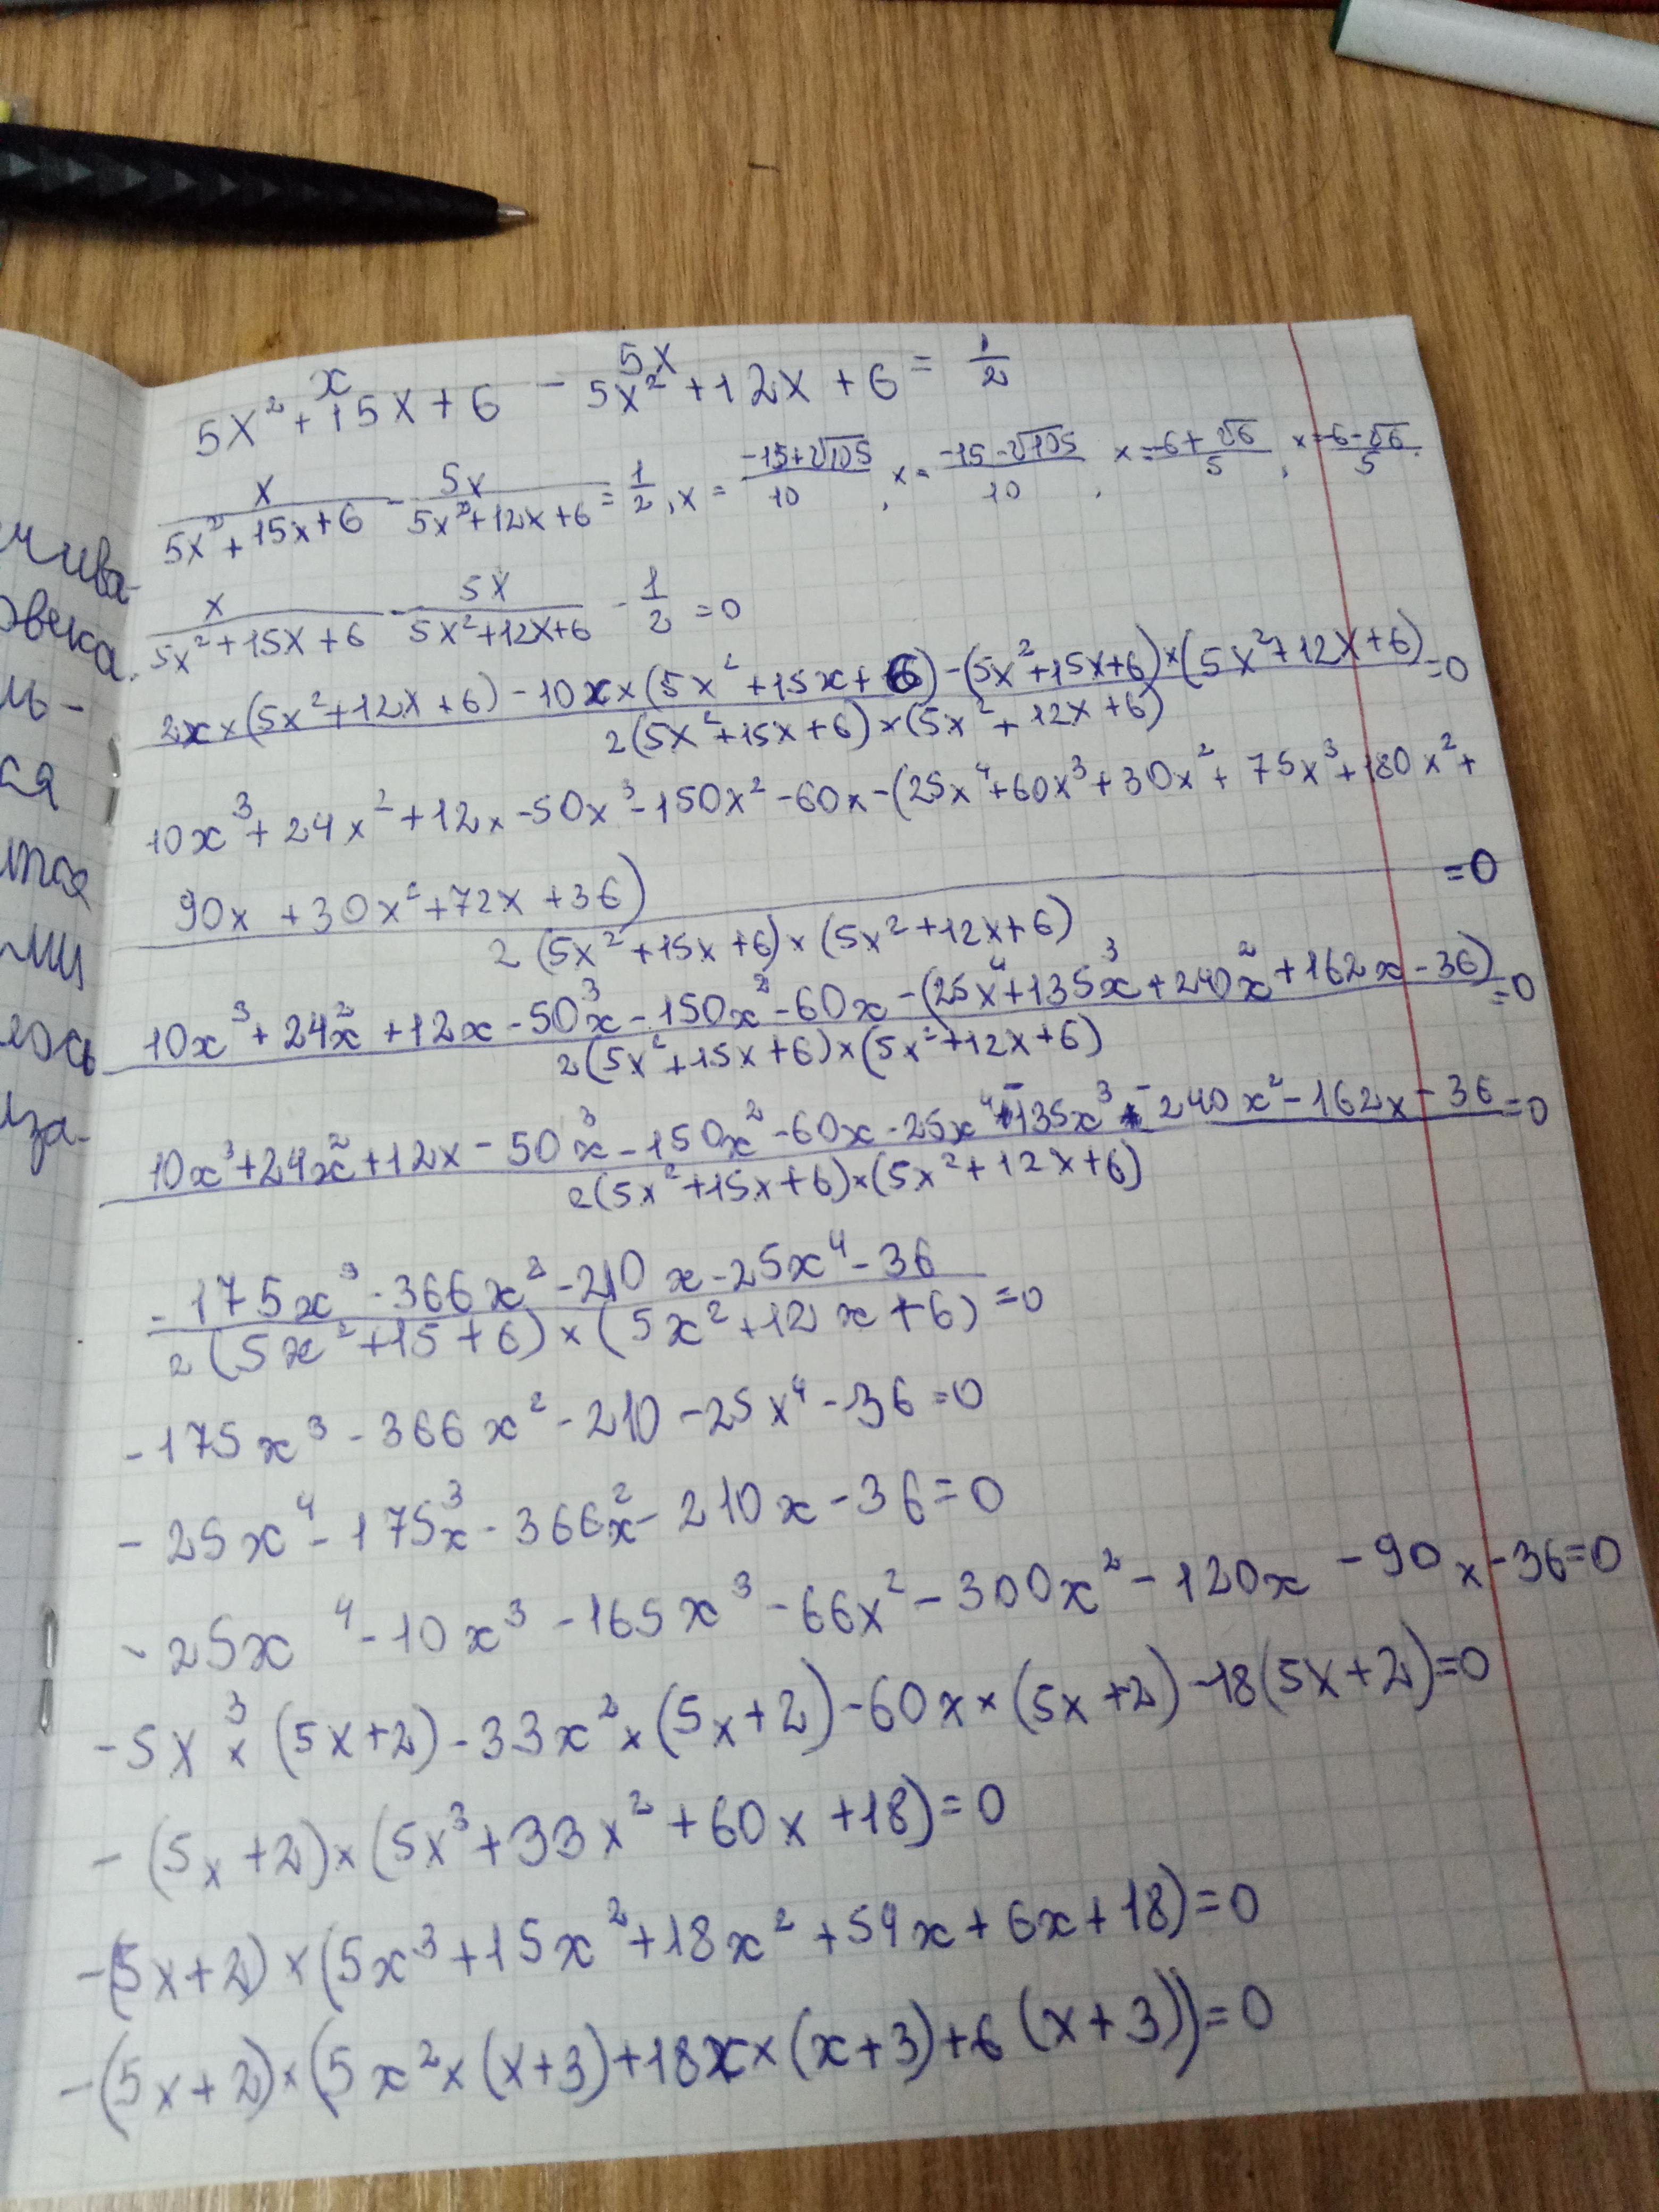 x/(5x² + 15x + 6) - 5x/(5x² + 12x + 6) = 1/2
x/(5x² + 15x + 6) - 5x/(5x² + 12x + 6) = 1/2, x = (-15+√105)/10, x = (-15-√105)/10, x = (-6+√6)/5, x = (-6-√6)/5
x/(5x² + 15x + 6) - 5x/(5x² + 12x + 6) - 1/2 = 0
(2x × (5x² + 12x + 6) - 10x × (5x² + 15x + 6) - (5x² + 15x + 6) × (5x² + 12x + 6))/(2(5x² + 15x + 6) × (5x² + 12x + 6)) = 0
10x³ + 24x² + 12x - 50x³ - 150x² - 60x - (25x⁴ + 60x³ + 30x² + 75x³ + 180x² +
90x + 30x² + 72x + 36)/(2(5x² + 15x + 6) × (5x² + 12x + 6)) = 0
(10x³ + 24x² + 12x - 50x³ - 150x² - 60x - (25x⁴ + 135x³ + 240x² + 162x - 36))/(2(5x² + 15x + 6) × (5x² + 12x + 6)) = 0
(10x³ + 24x² + 12x - 50x³ - 150x² - 60x - 25x⁴ - 135x³ - 240x² - 162x - 36)/(2(5x² + 15x + 6) × (5x² + 12x + 6)) = 0
(-175x³ - 366x² - 210x - 25x⁴ - 36)/(2(5x² + 15 + 6) × (5x² + 12x + 6)) = 0
-175x³ - 366x² - 210 - 25x⁴ - 36 = 0
-25x⁴ - 175x³ - 366x² - 210x - 36 = 0
-25x⁴ - 10x³ - 165x³ - 66x² - 300x² - 120x - 90x - 36 = 0
-5x³ × (5x+2) - 33x² × (5x+2) - 60x × (5x+2) - 18(5x+2) = 0
-(5x+2) × (5x³ + 33x² + 60x + 18) = 0
-(5x+2) × (5x³ + 15x² + 18x² + 54x + 6x + 18) = 0
-(5x+2) × (5x² × (x+3) + 18x × (x+3) + 6(x+3)) = 0